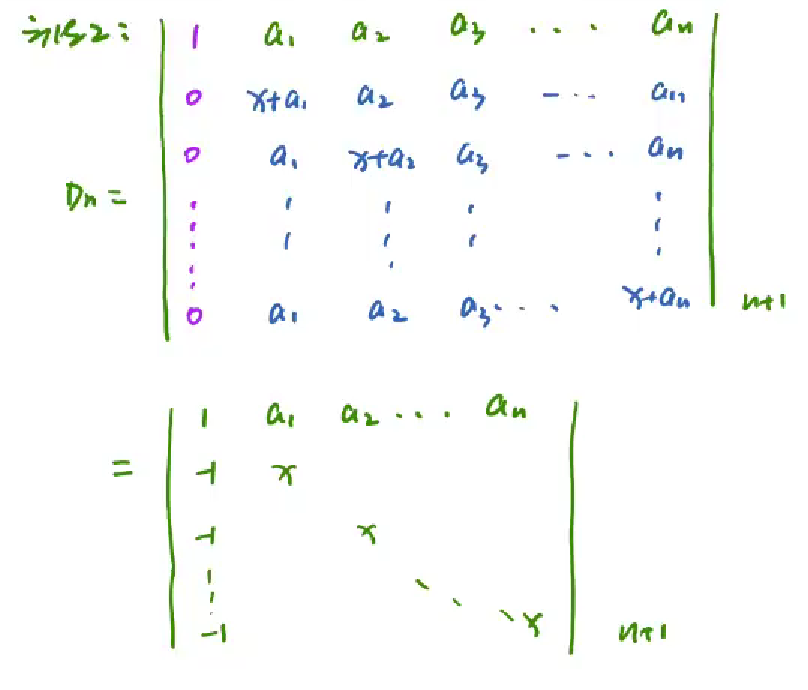 方法2:
1 a₁ a₂ a₃ ... aₙ
0 x+a₁ a₂ a₃ ... aₙ
0 a₁ x+a₂ a₃ ... aₙ
Dₙ = ⋮ ⋮ ⋮ ⋮ ⋮
0 a₁ a₂ a₃ ... x+aₙ n+1
1 a₁ a₂ ... aₙ
= -1 x
-1 x
⋮ ⋱
-1 x n+1